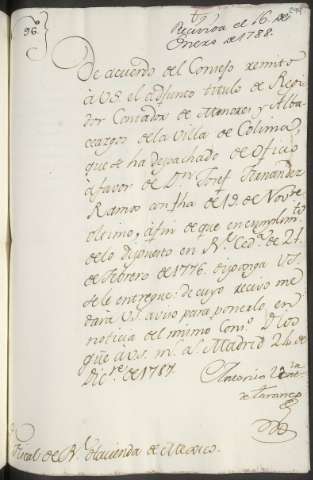 96º
Recivida el 16 de
Enero de 1788.
De acuerdo del Consejo remito
à VS. el adjunto titulo de Regi
dor Contador de Menores, y Alba
ceazgos de la Villa de Colima,
que se ha despachado de Oficio
à favor de Dn. Josef Fernandez
Ramos con fha de 19 de Novre
ultimo, à fin de que en cumplimto
de lo dispuesto en Rl. Cedª de 21
de Febrero de 1776. disponga VS.
se le entregue: de cuyo recivo me
dara VS. aviso para ponerlo en
noticia del mismo Conso. Dios
gue à VS. ms. as. Madrid 24 de
Dicre. de 1787.
Antonio Vra
de Taranco
Fiscal de Rl. Hacienda de Mexico.